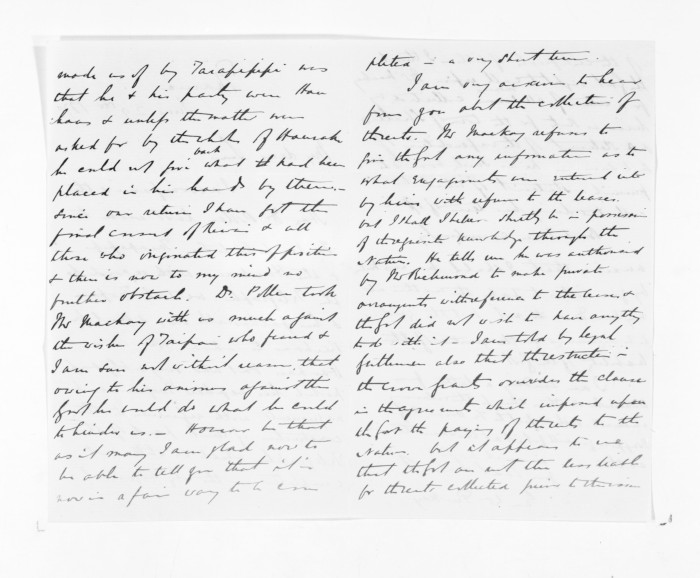 made use of by Tarapipipi was
that he & his party were Hau
haus & unless the matter were
asked for by the chiefs of Hauraki
he could not give back what had been
placed in his hands by them. –
since our return I have got the
final consent of & all
those who originated this opposition
& there is now to my mind no
further obstacle. Dr. Pollen took
Mr Mackay with us much against
the wishes of Taipari who feared &
I am sure not without reason, that
owing to his animus against the
Govt he would do what he could
to hinder us. – However be that
as it may I am glad now to
be able to tell you that it is
now in a fair way to be com
pleted – in a very short time.
I am very anxious to hear
from you about the collection of
the rents. Mr Mackay refuses to
give the Govt any information as to
what engagements were entered into
by him with reference to the leases.
but I shall I believe shortly be in possession
of the requisite knowledge through the
Natives. He tells me he was authorised
by Mr Richmond to make private
arrangements with reference to the leases &
the Govt did not wish to have anything
to do with it – I am told by legal
gentlemen also that the restriction in
the crown grants overrides the clause
in the agreements which imposed upon
the Govt the paying of the rents to the
Natives. but it appears to me
that the Govt are not the less liable
for the rents collected prior to the